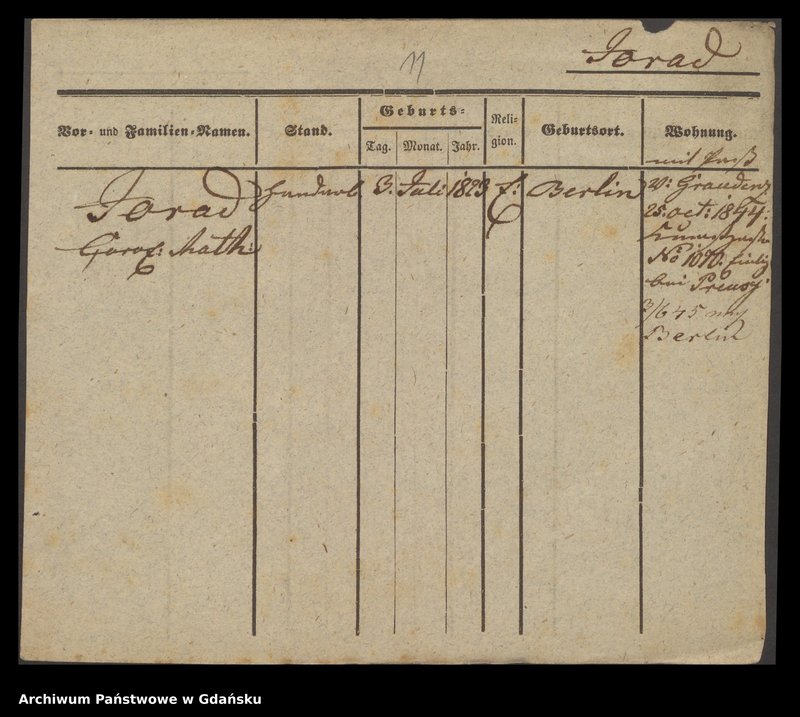 11
Jorad
Vor- und Familien-Namen.
Stand.
Geburts-
Tag.
Monat.
Jahr.
Reli-
gion.
Geburtsort.
Wohnung.
Jorad
Math:
Handarb.
3.
Juli
1823
Berlin
mit Paß
v: Graudenz
25. oct: 1844:
No 1070:
bei
3/6 45 nach
Berlin
Archiwum Państwowe w Gdańsku